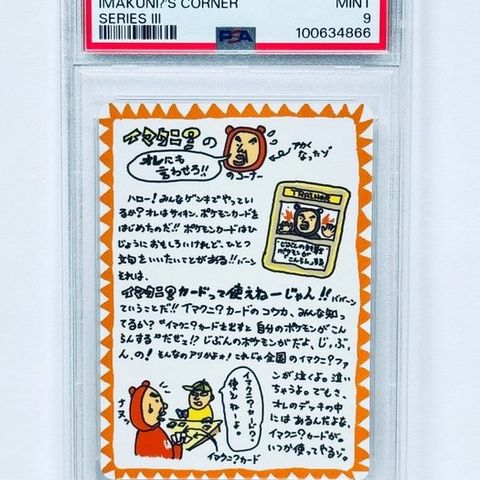 IMAKUNI?'S CORNER
MINT
SERIES III
9
PSA
100634866
イマクニ?の
オレにも
言わせろ!!
のコーナー
アカく
なったゾ
TRAINER
じぶんの
ポケモンが
こんらんする
ハロー!みんなゲンキでやってい
るか?オレはサイキン、ポケモンカードを
はじめたのだ!!ポケモンカードはひ
じょうにおもしろいけれど、ひとつ
文句をいいたいことがある!!バーン
それは、
イマクニ?カードって使えねーじゃん!!ババーン
ていうことだ!!イマクニ?カードのコウカ、みんな知っ
てるか?"イマクニ?カードを出すと自分のポケモンがこん
らんする"だぜ!?じぶんのポケモンがだよ、じ、ぶ、
ん、の!そんなのアリかよォ!これじゃ全国のイマクニ?ファ
ンが泣くよ。泣い
ちゃうよ。でもさ、
オレのデッキの中
にはあるんだよな、
イマクニ?カードが。
いつか使ってやるゾ。
イマクニ?カード?
使えねーよ。
ナヌッ
イマクニ?カード